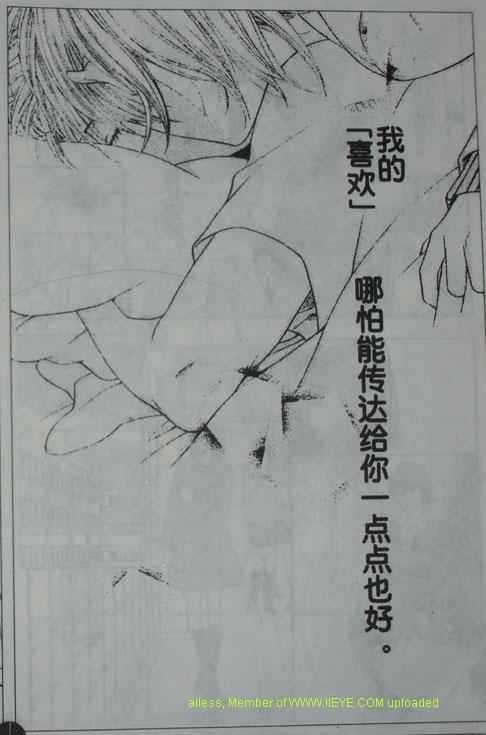 我的
「喜欢」
哪怕能传达给你一点点也好。
ailess, Member of WWW.IIEYE.COM uploaded